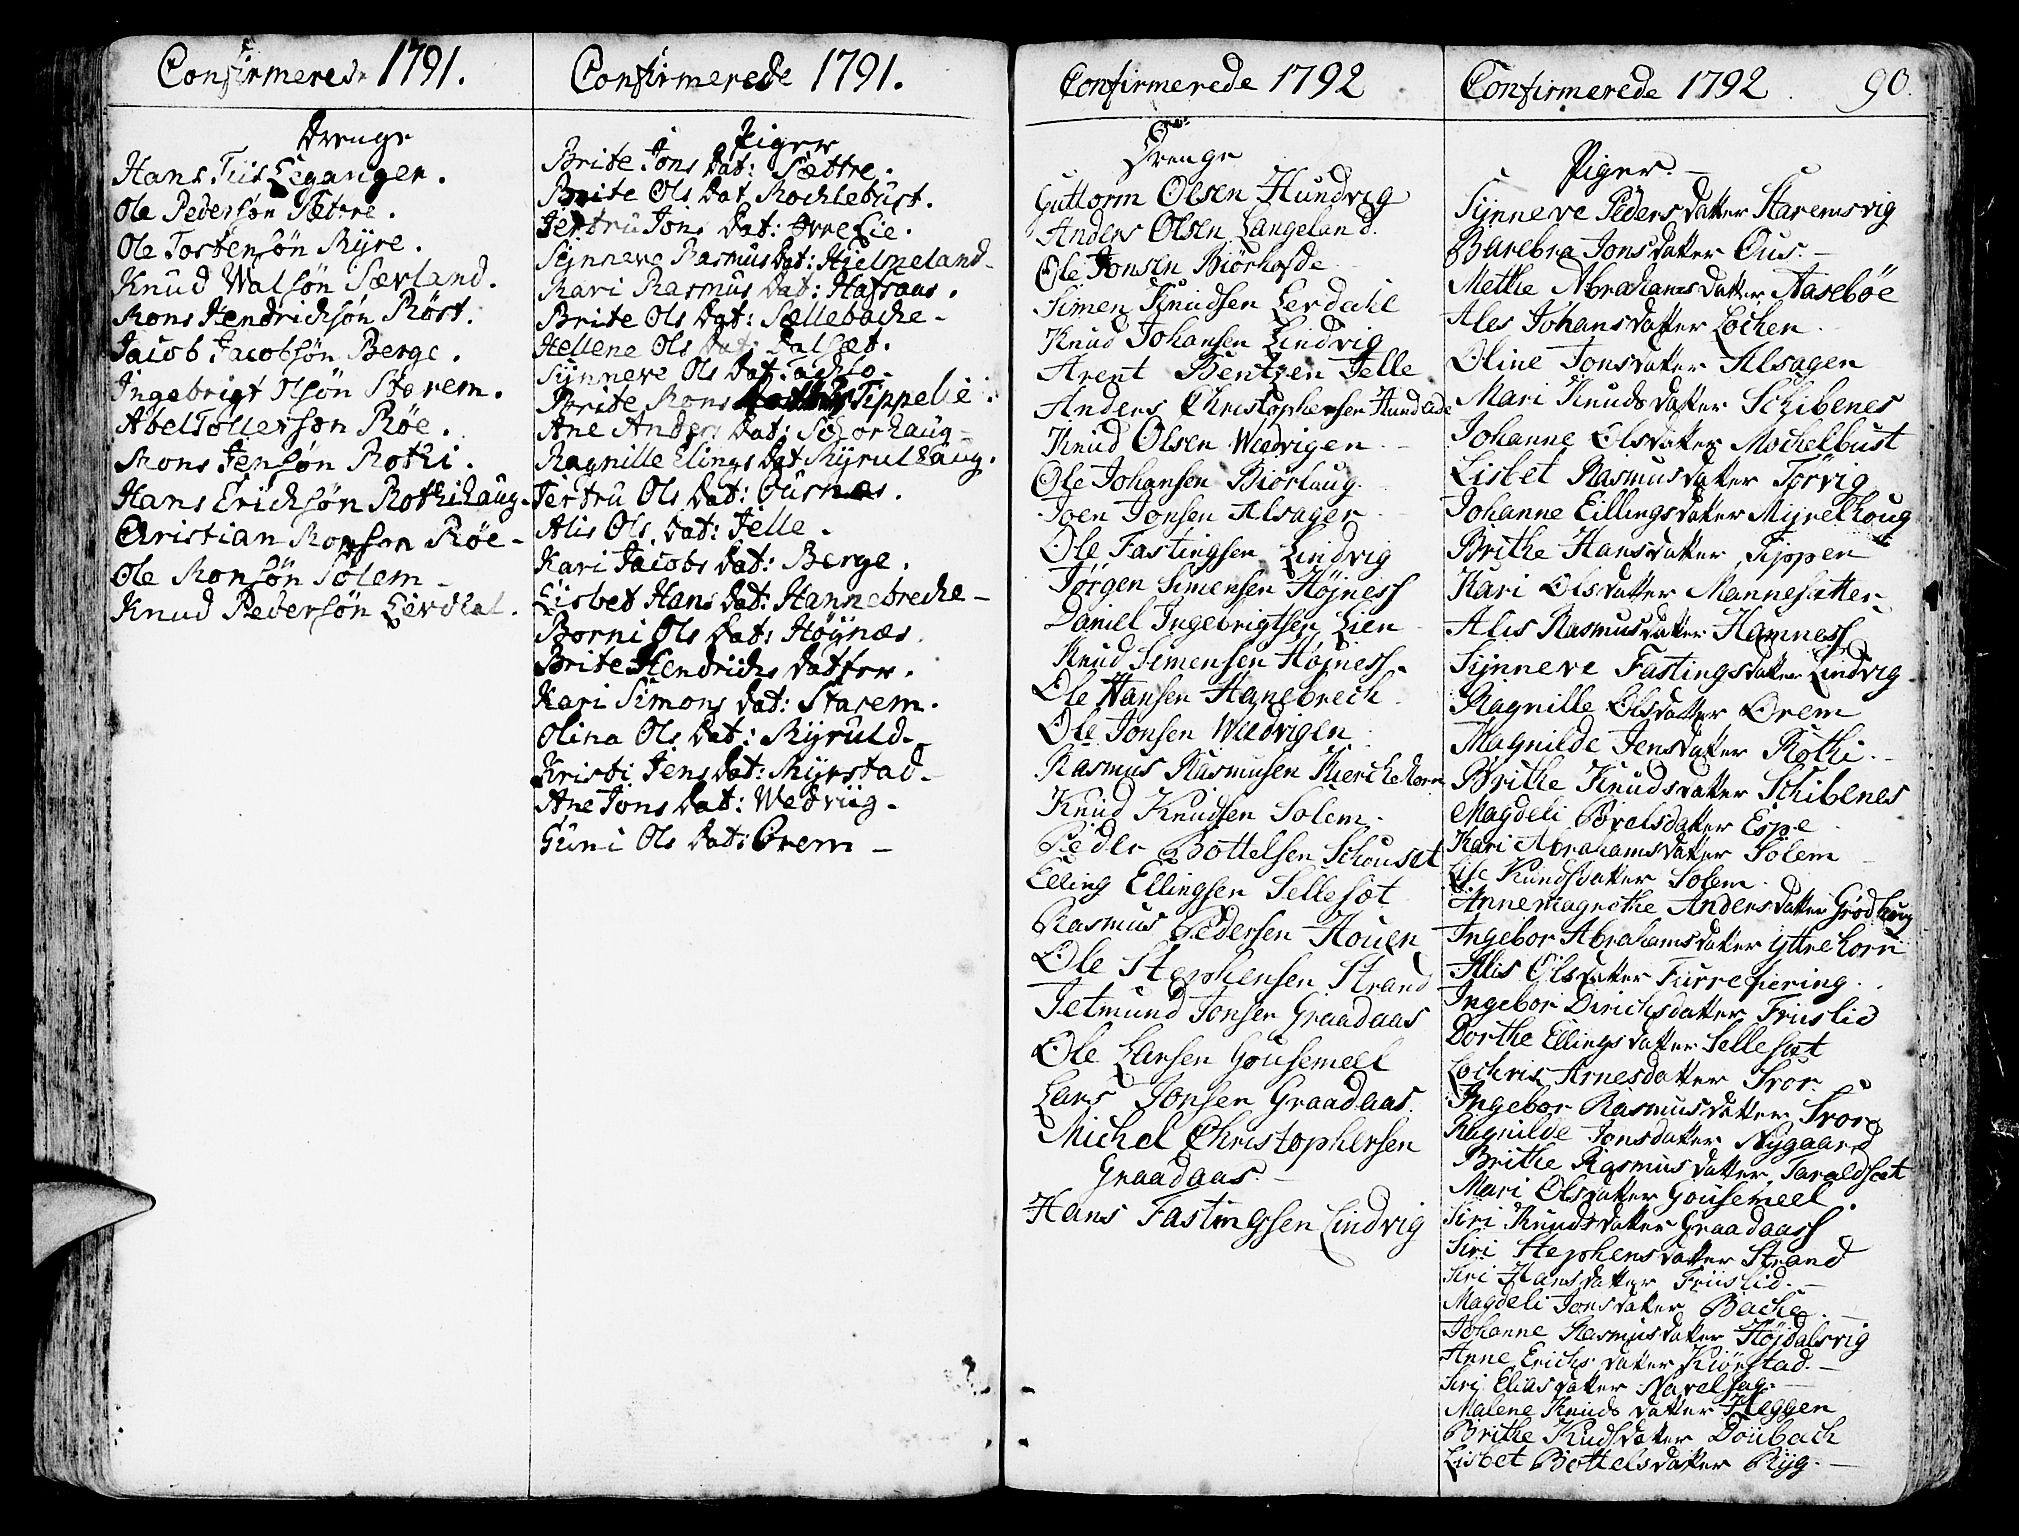 Confirmerede 1791.
Drenge
Hans Friis Leganger.
Ole Pedersøn Sættre.
Ole Tostensøn Myre.
Knud Walsøn Sørland.
Mons Hendrichsøn Røst.
Jacob Jacobsøn Berge.
Ingebrigt Olsøn Starem.
Abel Tollersøn Røe.
Mons Jensøn Rothi.
Hans Erichsøn Rothihaug.
Christian Monsøn Røe.
Ole Monsøn Solem
Knud Pedersøn Lerdal.
Confirmerede 1791.
Piger
Brite Jons Dat: Sættre.
Brite Ols Dat Mochlebust.
Jertru Jons Dat: Lie.
Synneve Rasmus Dat: Hielmeland
Kari Rasmus Dat: Hafsaas.
Brite Ols Dat: Sællebache
Hellene Ols Dat: Dalsæt.
Synneve Ols Dat:
Brite Mons Tippelie
Ane Anders Dat:
Ragnille Elings Dat Myrulhaug.
Jertru Ols Dat: Ousnæs.
Alis Ols Dat: Felle.
Kari Jacobs Dat: Berge.
Lisbet Hans Dat: Hannebreche
Borni Ols Dat: Høgnæs
Brite Hendrichs Datter.
Kari Simons Dat: Starem.
Olina Ols Dat: Myruld.
Kristi Jens Dat: Myrstad
Ane Jons Dat: Wedviig
Guni Ols Dat: Orem
Confirmerede 1792
Drenge
Guttorm Olsen Hundvig
Anders Olsen Langeland.
Ole Jonsen Biørhofde
Simen Knudsen Lerdahl
Knud Johansen Lindvig
Arent Bentzen Felle
Anders Christophersen Hundeide
Knud Olsen Wiedvigen
Ole Johansen Biørhaug
Joen Jonsen Alsager
Ole Fastingsen Lindvig
Jørgen Simensen Højness
Daniel Ingebrigtsen Lien
Knud Simensen Højness.
Ole Hansen Hanebrech
Ole Jonsen Wiedvigen
Rasmus Rasmusen Kierchehorn
Knud Knudsen Solem.
Peder Bottelsen Schouset
Elling Ellingsen Sellesæt
Rasmus Pedersen Houen
Ole Stephensen Strand
Jetmund Jonsen Graadaas
Ole Larsen Gousemeel
Lars Jonsen Graadaas.
Michel Christophersen
Graadaas.
Hans Fastingsen Lindvig
Confirmerede 1792. 90.
Piger.
Synneve Pedersdatter Staremsvig
Barebra Jonsdatter Ous.
Methe Abrahamsdatter Aasebøe
Ales Johansdatter Lochen
Oline Jonsdatter Alsagen
Mari Knudsdatter Schibenes
Johanne Olsdatter Mochelbust
Lisbet Rasmusdatter Torvig
Johanne Eillingsdatter Myrelhoug
Brithe Hansdatter Tippen
Kari Olsdatter Mannesætter
Alis Rasmusdatter Hamness
Synneve Fastingsdatter Lindvig
Ragnille Olsdatter Orem
Magnilde Jensdatter Rothi.
Brithe Knudsdatter Schibenes
Magdeli Povelsdatter Espe
Kari Abrahamsdatter Solem
Lise Knudsdatter Solem.
Annemagrethe Andersdatter Grodhaug
Ingebor Abrahamsdatter Yttrehorn
Alis Olsdatter Furrefiering.
Ingebor Dirichsdatter Friislid
Dorthe Ellingsdatter Sellesæt
Lochris Arnesdatter Tror
Ingebor Rasmusdatter Tror
Ragnilde Jonsdatter Nygaard
Brithe Rasmusdatter Taraldsæt
Mari Olsdatter Gousemeel.
Siri Knudsdatter Graadaass
Siri Stephensdatter Strand
Siri Hansdatter Friislid.
Magdeli Jonsdatter Bache
Johanne Rasmusdatter Højdalsvig
Anne Erichsdatter Kiørstad.
Siri Eliasdatter Navelsag.
Malene Knudsdatter Heggen
Brithe Knudsdatter Doubach
Lisbet Bottelsdatter Ryg.